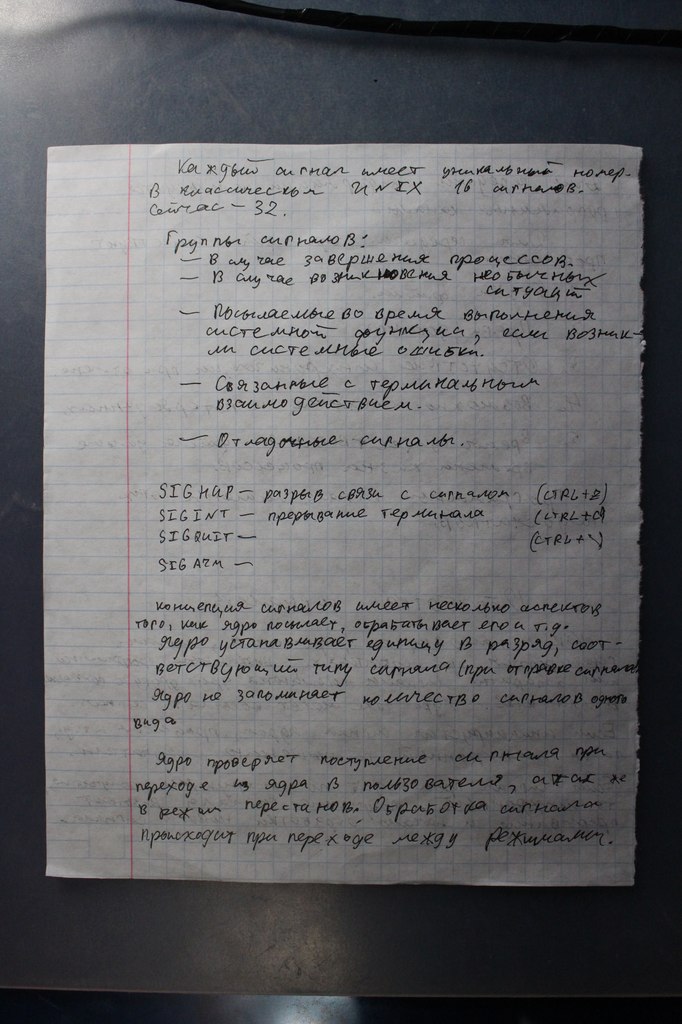 Каждый сигнал имеет уникальный номер.
В классическом UNIX 16 сигналов.
Сейчас – 32.
Группы сигналов:
– В случае завершения процессов.
– В случае возникновения необычных
ситуаций
– Посылаемые во время выполнения
системной функции, если возник-
ли системные ошибки.
– Связанные с терминальным
взаимодействием.
– Отладочные сигналы.
SIGHUP – разрыв связи с сигналом (CTRL+Z)
SIGINT – прерывание терминала (CTRL+C)
SIGQUIT – (CTRL+\)
SIG –
концепция сигналов имеет несколько аспектов
того, как ядро посылает, обрабатывает его и т.д.
Ядро устанавливает единицу в разряд, соот-
ветствующий типу сигнала (при отправке сигнала)
Ядро не запоминает количество сигналов одного
вида
Ядро проверяет поступление сигнала при
переходе из ядра в пользователя, а так же
в режим перестанов. Обработка сигнала
происходит при переходе между режимами.